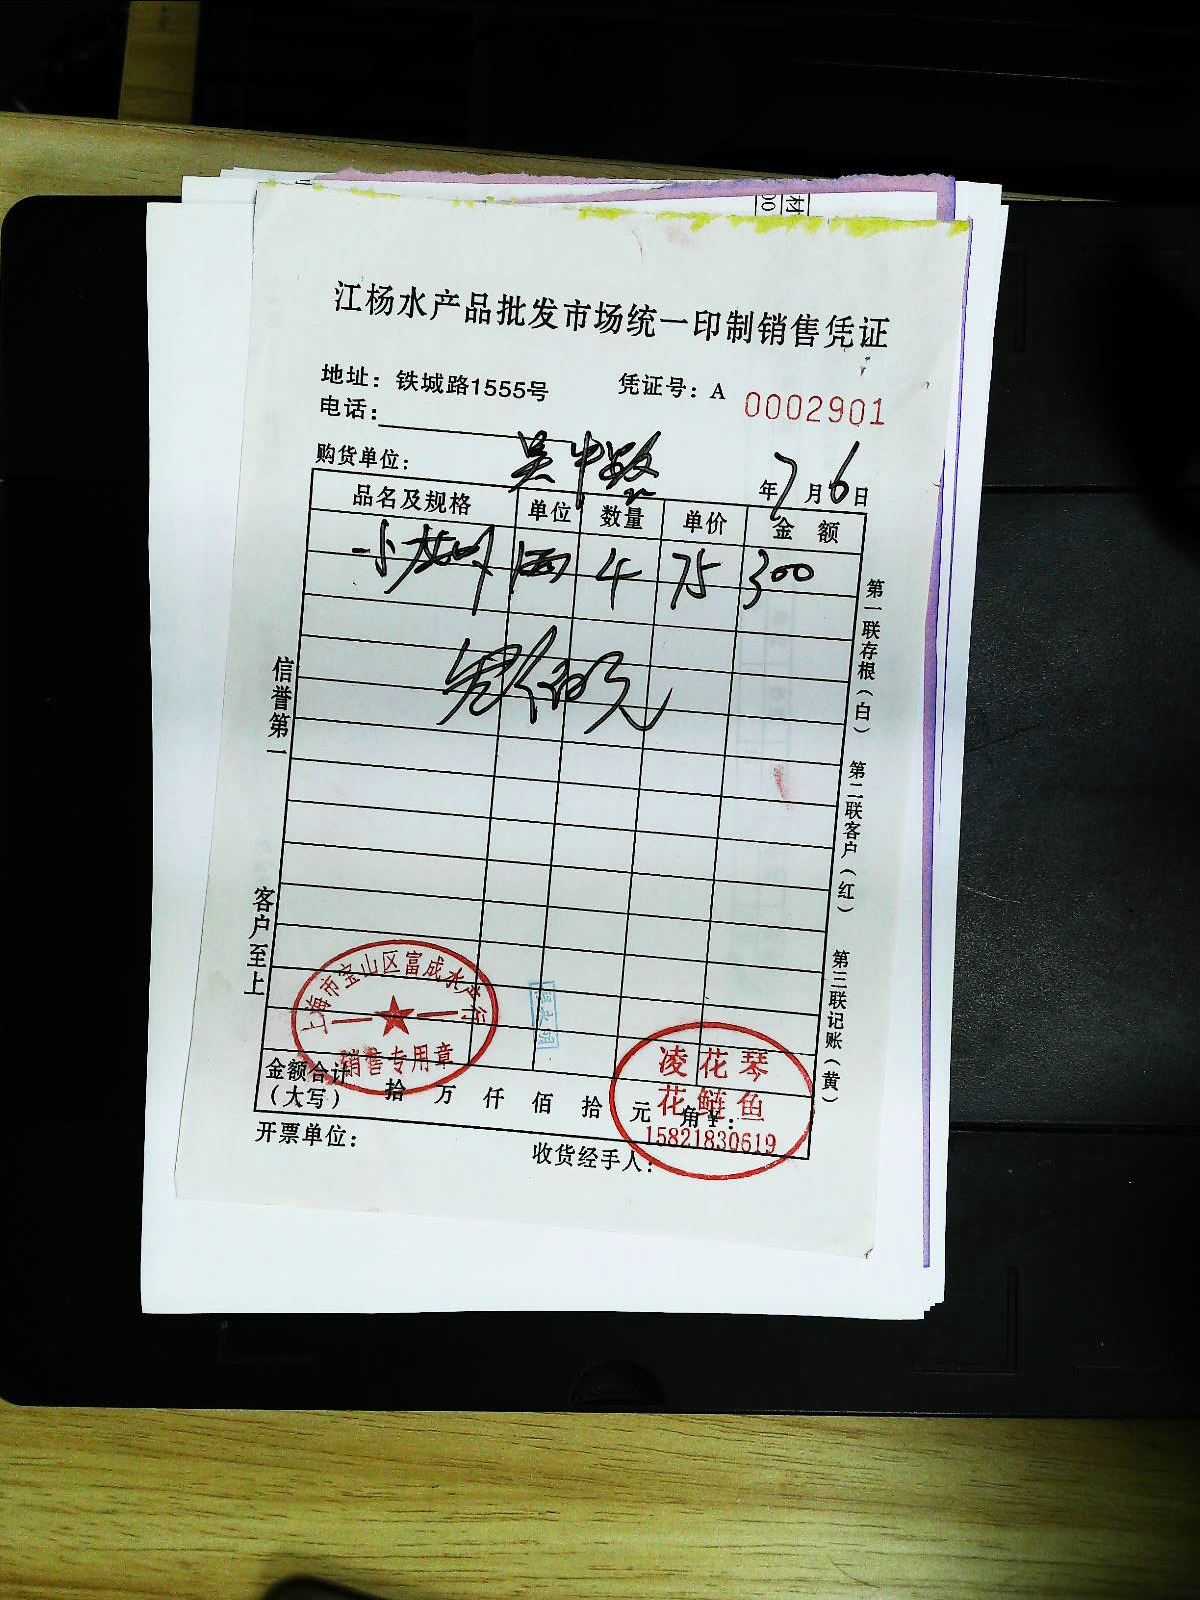 材
00
江杨水产品批发市场统一印制销售凭证
地址：铁城路1555号 凭证号：A 0002901
电话：
购货单位： 吴中路 年7月6日
品名及规格 单位 数量 单价 金额
小龙虾 4 75 300
叁佰元
信誉第一
客户至上
第一联存根（白）
第二联客户（红）
第三联记账（黄）
上海市宝山区富成水产行
销售专用章
凌花琴
花鲢鱼
15821830619
金额合计
（大写） 拾万仟佰拾元角￥：
开票单位： 收货经手人：